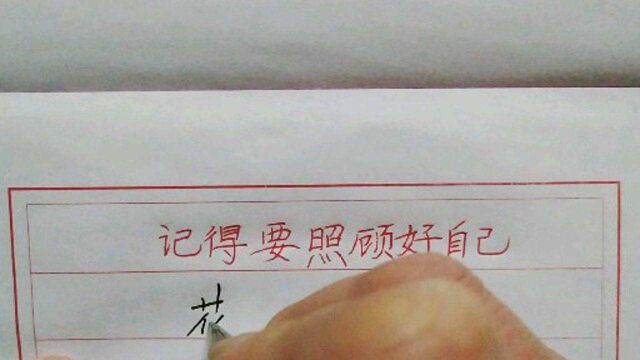 记得要照顾好自己